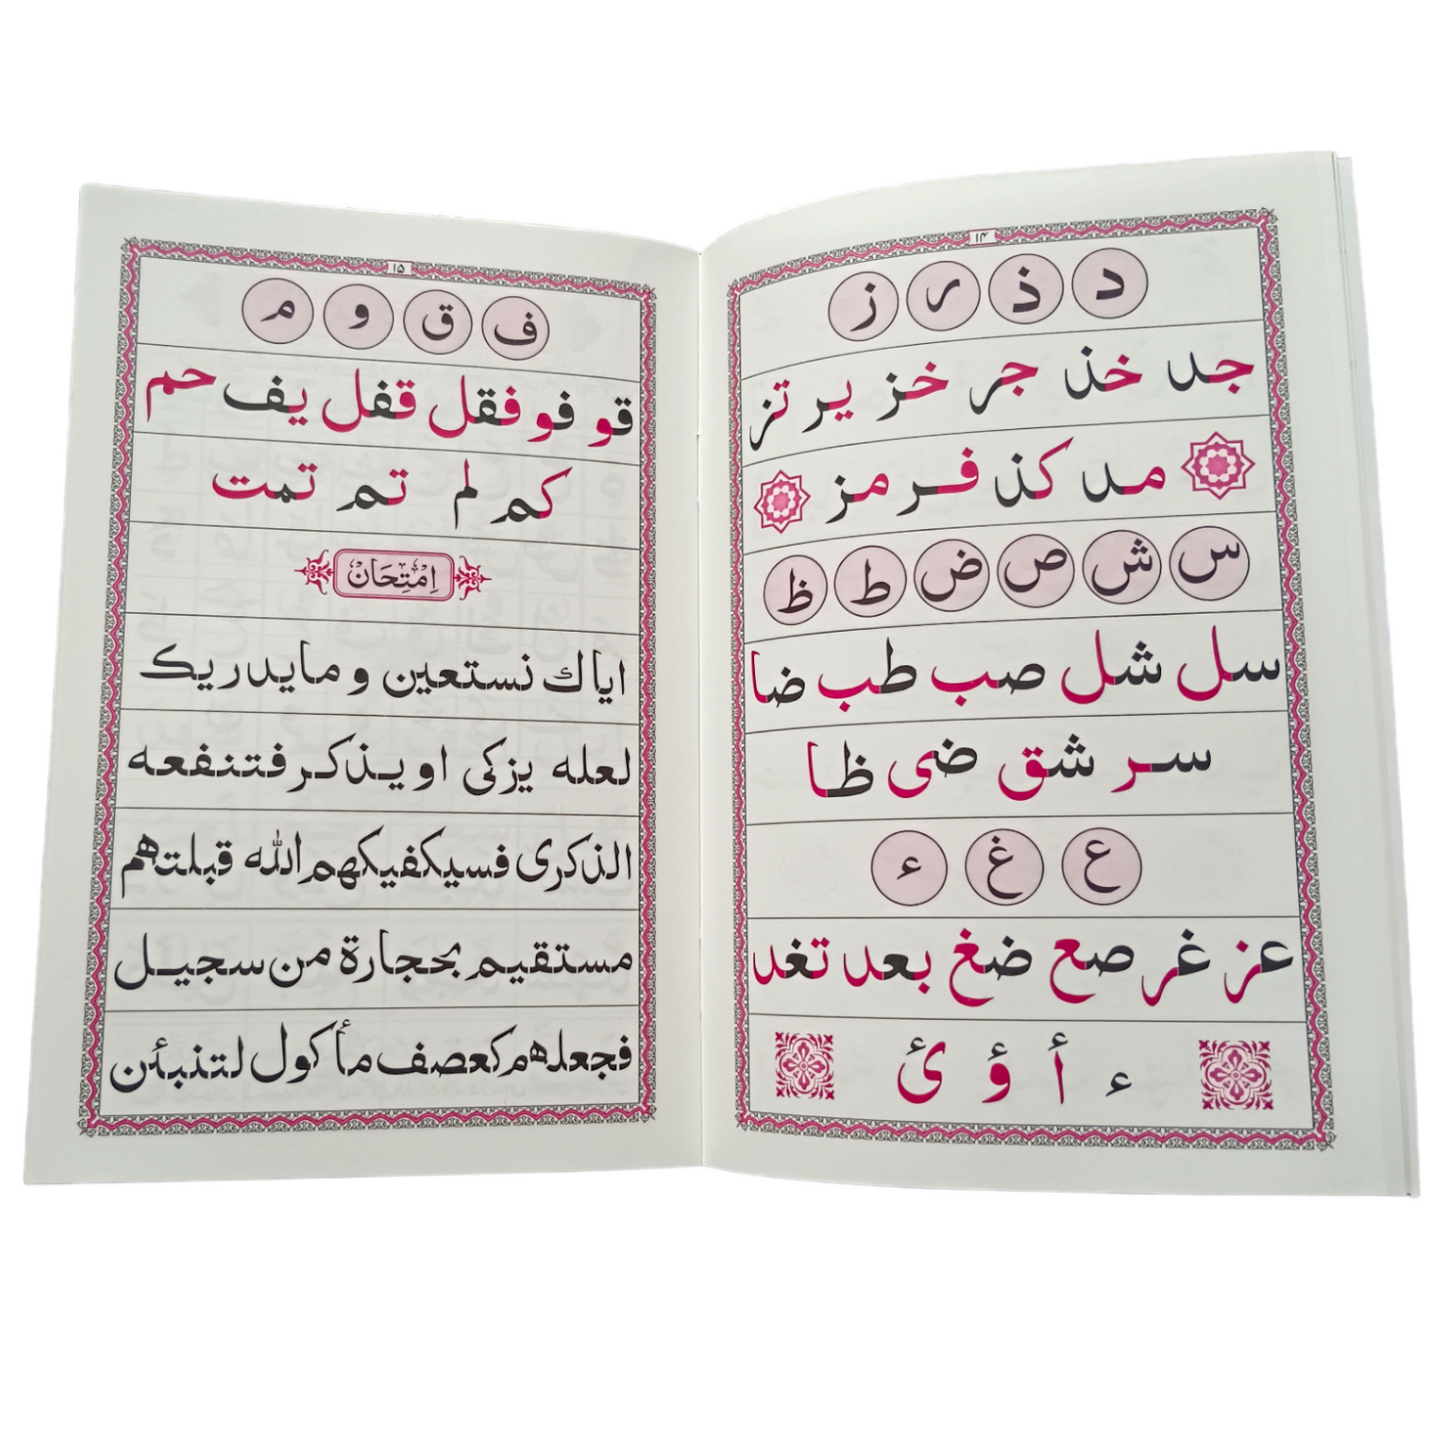 ۱۴
د ذ ر ز
جد خذ جر خز یر تز
مد کذ فر مز
س ش ص ض ط ظ
سل شل صب طب ضا
سر شق ضی ظا
ع غ ء
عز غر صع ضغ بعد تغد
ء أ ؤ ئ
۱۵
ف ق و م
قو فو فقل قفل یف حم
کم لم تم تمت
اِمْتِحَان
ایاك نستعین و مایدریک
لعله یزکی او یذکر فتنفعه
الذکری فسیکفیکهم الله قبلتهم
مستقیم بحجارة من سجیل
فجعلهم کعصف مأکول لتنبئن